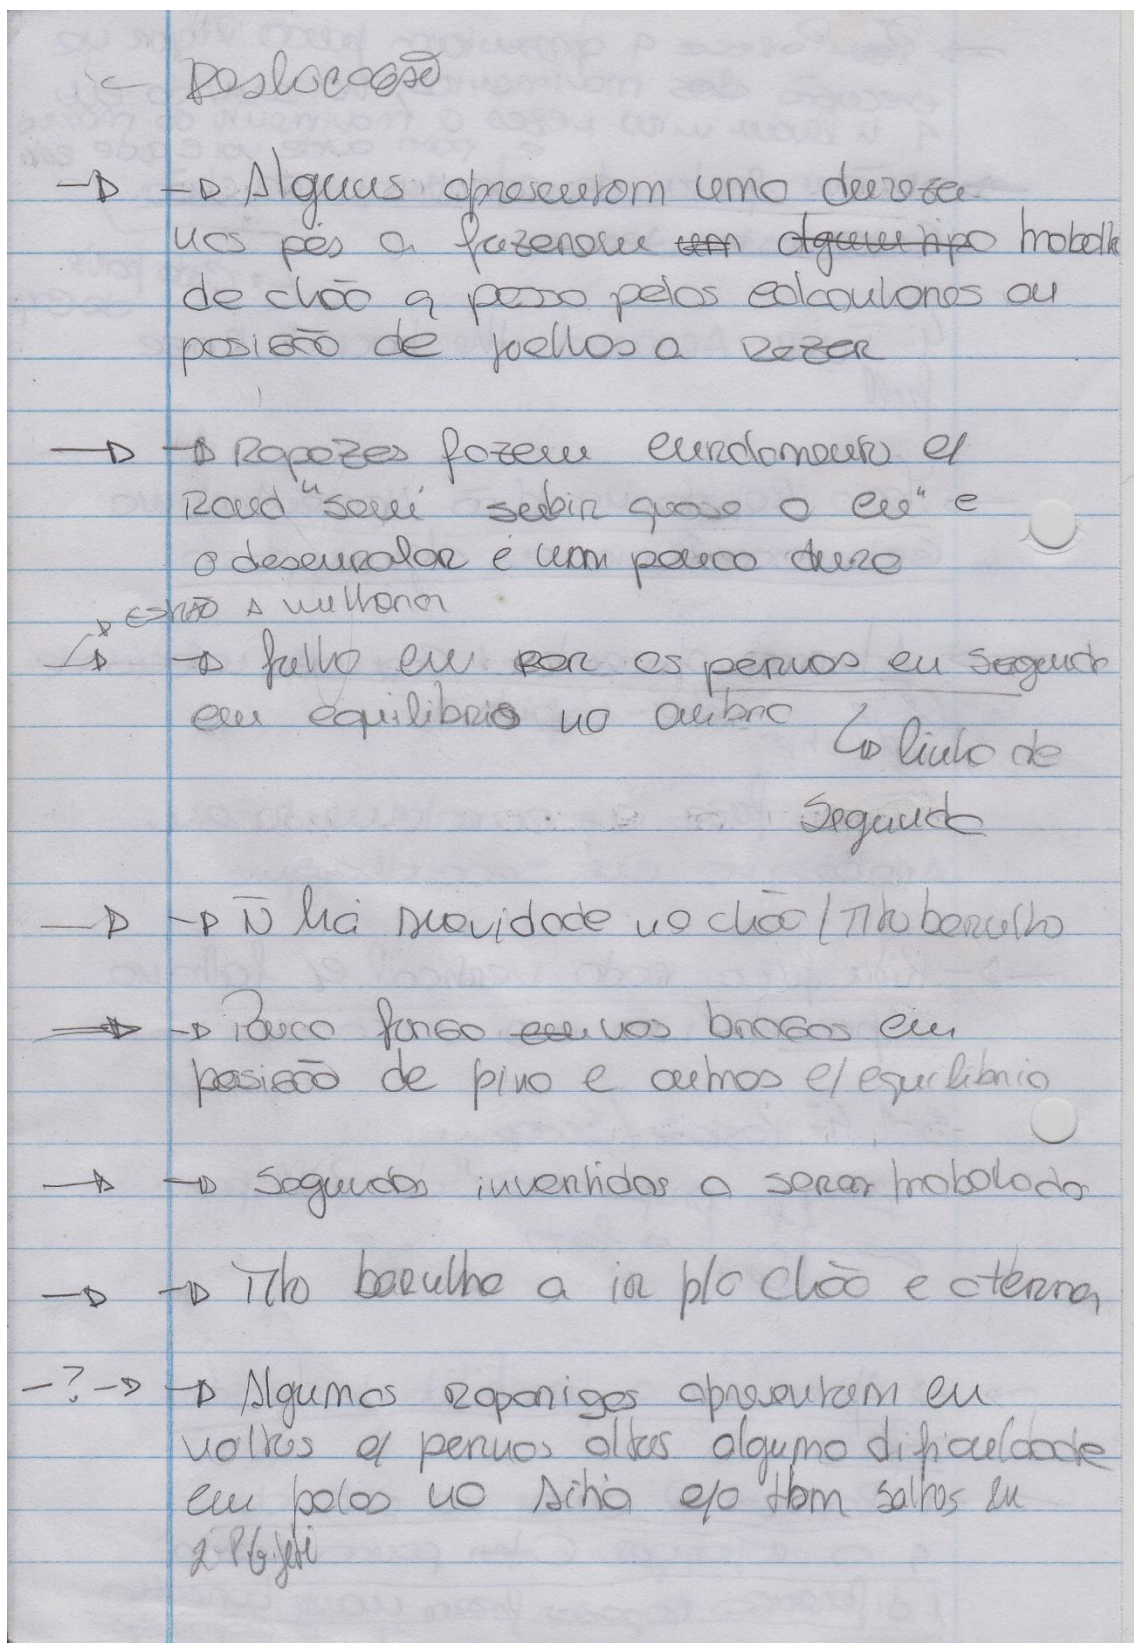 Deslocação
→ → Alguns apresentam uma dureza
nos pés a fazerem um algum tipo trabalho
de chão q passa pelos calcanhares ou
posição de joelhos a rezar
→ → Rapazes fazem enrolamento c/
Rond "sem" subir quase o cu" e
o desenrolar é um pouco duro
→ estão a melhorar
→ → falha em por as pernas em segunda
em equilibrio no ombro
↳ linha de
segunda
→ → Ñ há suavidade no chão / Mto barulho
→ → Pouca força em nos braços em
posição de pino e outros c/ equilibrio
→ → Segundas invertidas a serem trabalhadas
→ → Mto barulho a ir p/o chão e aterrar
-?-→ → Algumas raparigas apresentam em
voltas c/ pernas altas alguma dificuldade
em pelas no sitio c/o tbm saltos em
2